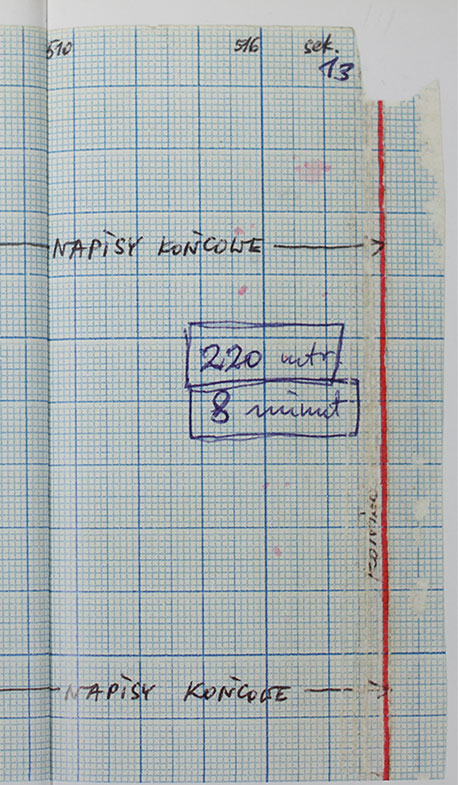 510 516 sek.
13
NAPISY KOŃCOWE
220 mtr
8 minut
KONIEC
NAPISY KOŃCOWE